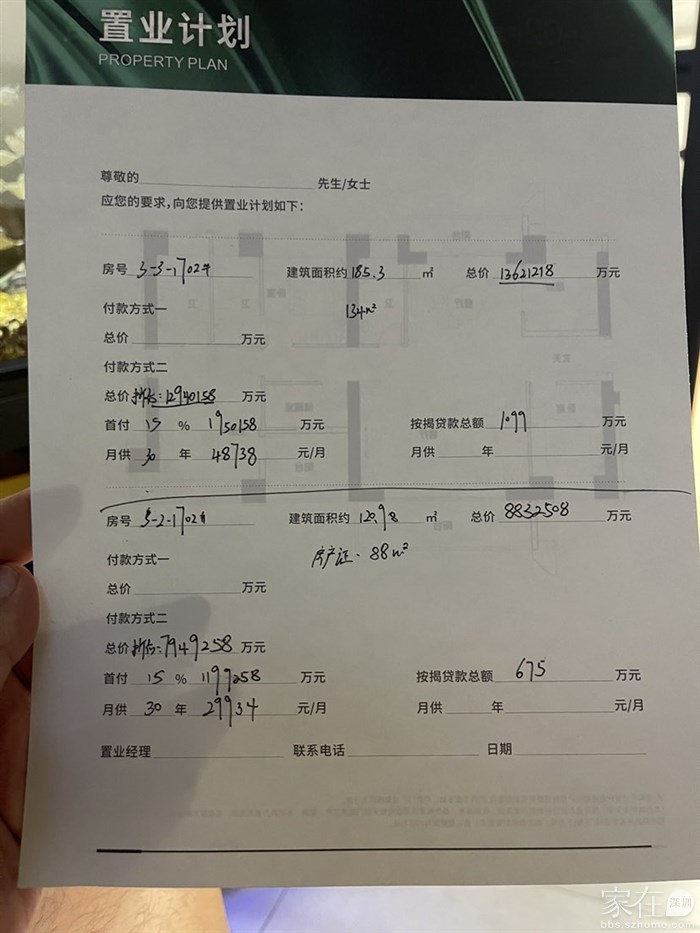 置业计划
PROPERTY PLAN
尊敬的 先生/女士
应您的要求，向您提供置业计划如下：
房号 3-3-1702# 建筑面积约 185.3 ㎡ 总价 13621218 万元
付款方式一 134m²
总价 万元
付款方式二
总价 折后：12940158 万元
首付 15 % 1950158 万元 按揭贷款总额 1099 万元
月供 30 年 48738 元/月 月供 年 元/月
房号 3-2-1702# 建筑面积约 120.98 ㎡ 总价 8832508 万元
付款方式一 房产证：88m²
总价 万元
付款方式二
总价 折后：7949258 万元
首付 15 % 1199258 万元 按揭贷款总额 675 万元
月供 30 年 29934 元/月 月供 年 元/月
置业经理 联系电话 日期
家在深圳
bbs.szhome.com